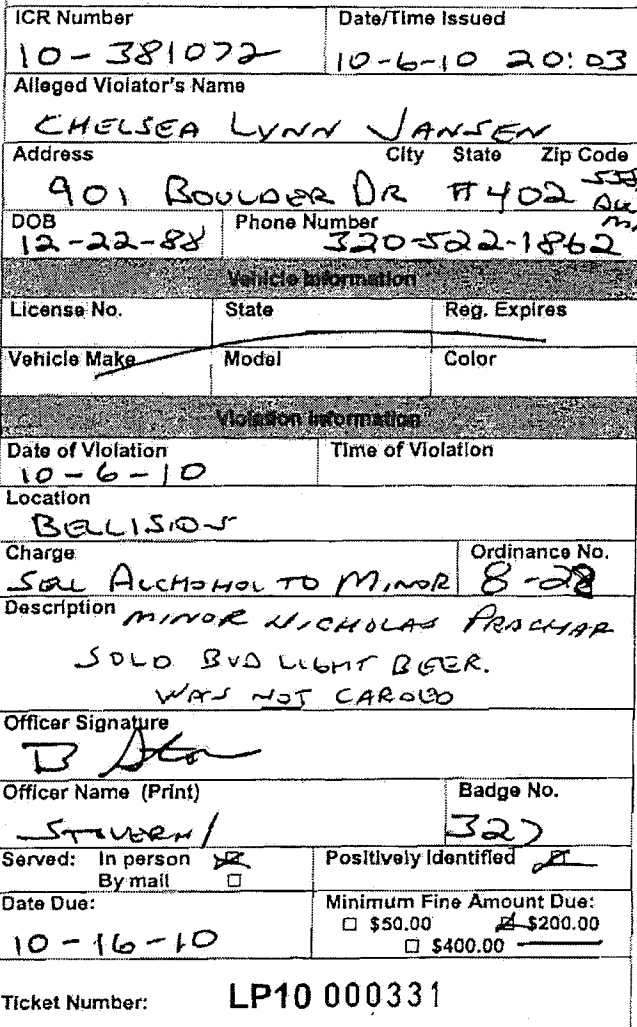 ICR Number Date/Time Issued
10-381072 10-6-10 20:03
Alleged Violator's Name
CHELSEA LYNN JANSEN
Address City State Zip Code
901 BOULDER DR #402
DOB Phone Number
12-22-88 320-522-1862
Vehicle Information
License No. State Reg. Expires
Vehicle Make Model Color
Violation Information
Date of Violation Time of Violation
10-6-10
Location
BELLISIOS
Charge Ordinance No.
SELL ALCHOHOL TO MINOR 8-28
Description MINOR NICHOLAS PRACHAR
SOLD BUD LIGHT BEER.
WAS NOT CARDED
Officer Signature
Officer Name (Print) Badge No.
327
Served: In person Positively Identified
By mail
Date Due: Minimum Fine Amount Due:
$50.00 $200.00
10-16-10 $400.00
Ticket Number: LP10 000331